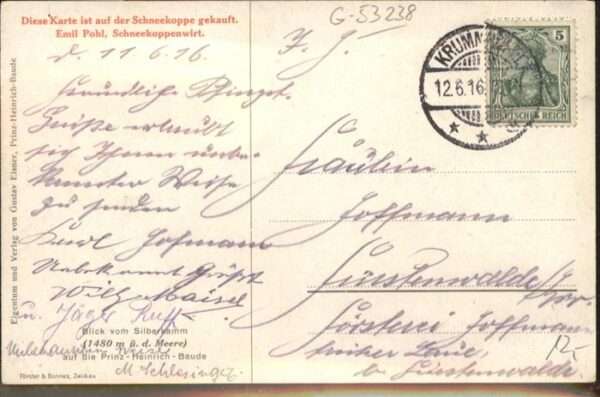 Diese Karte ist auf der Schneekoppe gekauft.
Emil Pohl, Schneekoppenwirt.
G-53238
d. 11.6.16.
Freundliche Pfingst-
Grüße erlaubt
sich Ihnen unbe-
kannter Weise
zu senden
Karl Hofmann
Unbekannt grüßt
Willy Maisel
u. Jäger Kuff
Unbekannter Weise
M Schlesinger
Blick vom Silberkamm
(1480 m ü. d. Meere)
auf die Prinz-Heinrich-Baude
Förster & Borries, Zwickau
Eigentum und Verlag von Gustav Elsner, Prinz-Heinrich-Baude
KRUMMHÜBEL
12.6.16.
5
DEUTSCHES REICH
Fräulein
Hoffmann
Fürstenwalde/Spr.
Försterei Hoffmann
b. Fürstenwalde.
12,-